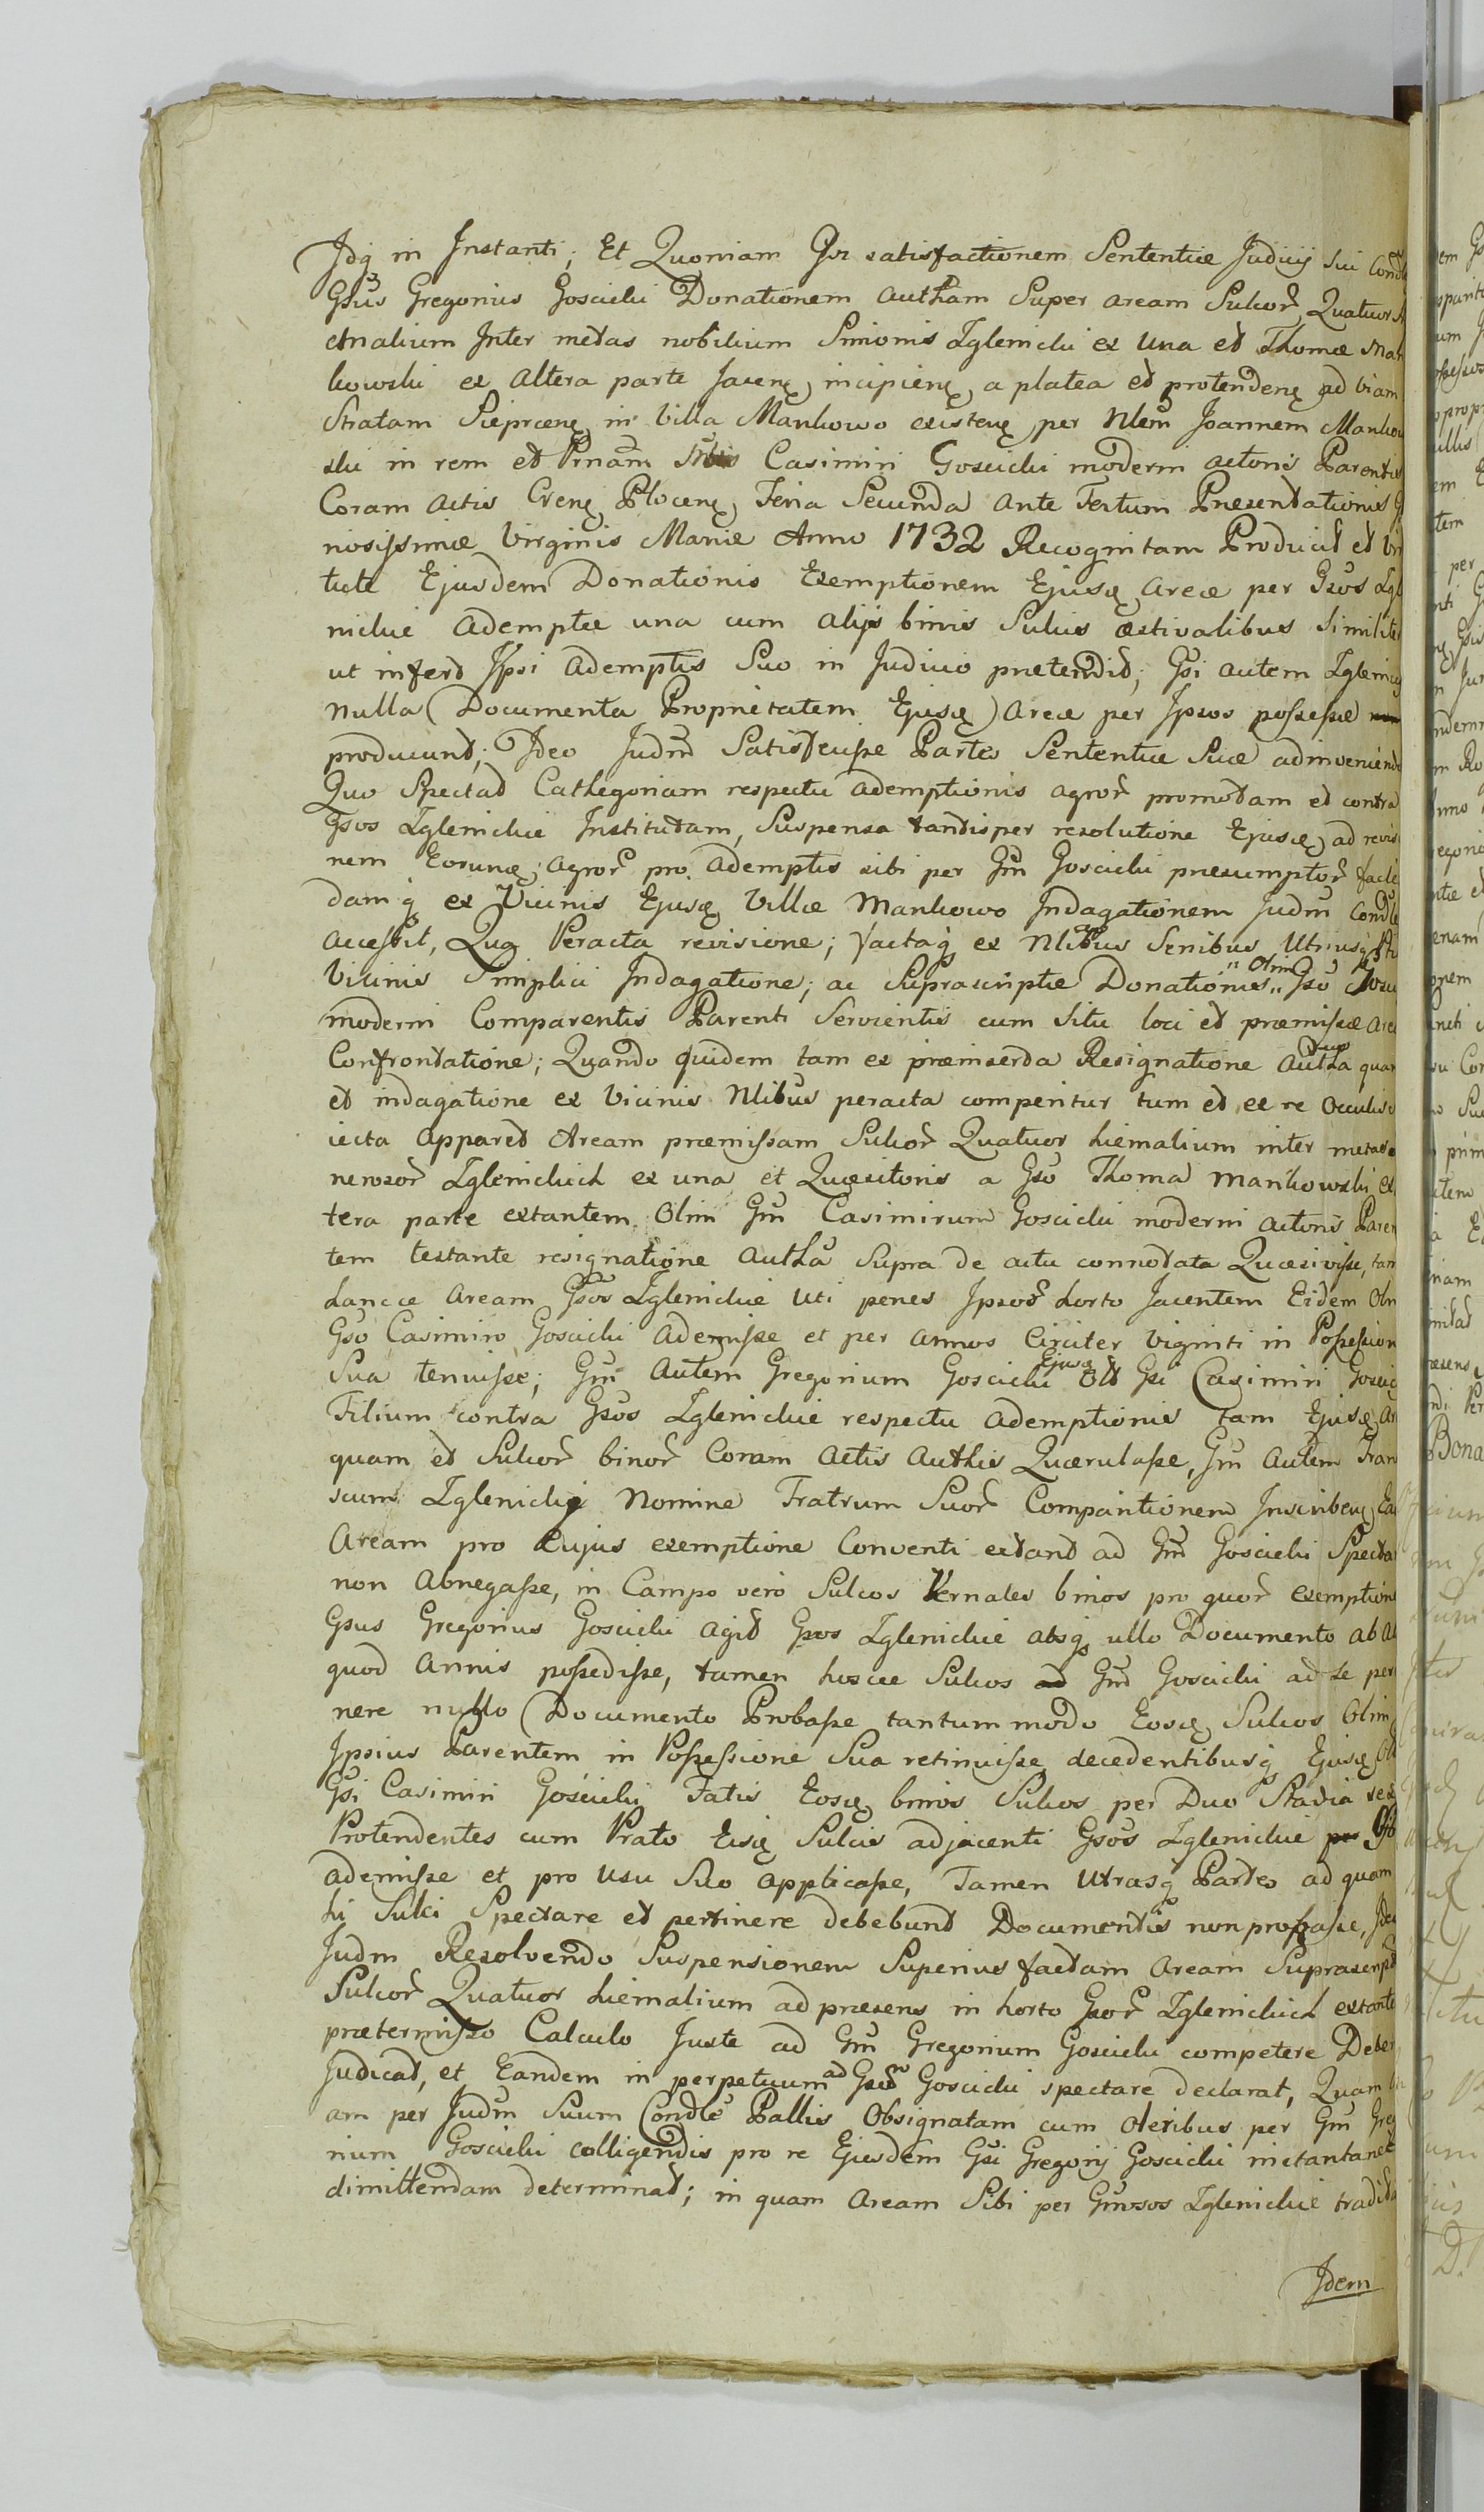 Idq in Instanti; Et Quoniam Per satisfactionem Sententiæ Judicij sui Cond
Gsus Gregorius Goscicki Donationem autham Super aream Sulcor Quatuor
etnalium Inter metas nobilium Simonis Iglenicki ex una et Thomæ Mań
kowski ex altera parte Jacenę incipienę a platea et protendenę ad viam
Stratam Sieprcenę in Villa Mankowo existenę per Nlem Joannem Mankow
ski in rem et Prnam Casimiri Goscicki moderni actoris Parentis
Coram Actis Crenę Plocenę Feria Secunda ante Festum Præsentationis G
riosissimæ Virginis Mariæ Anno 1732 Recognitam Producit et Vir
tute Ejusdem Donationis Exemptionem Ejuscę areæ per Gsos Igl
nickie Ademptæ una cum alijs binis Sulcis æstivalibus Similiter
ut infert Ipsi Ademptis Suo in Judicio prætendit; Gsi autem Iglenicij
nulla Documenta Proprietatem Ejuscę areæ per Ipsos possessæ
producunt; Ideo Judm Satisfecisse Partes Sententiæ Suæ adinveniendo
Quo Spectat Cathegoriam respectu ademptionis agror promotam et contra
Gsos Iglenickie Institutam, Suspensa tantisper resolutione Ejuscę ad revisio
nem Eoruncę agror pro ademptis sibi per Gm Goscicki præsumptor facie
damq ex Vicinis Ejuscę Villæ Mankowo Indagationem Judm Condle
accessit, Qua Peracta revisione; factaq ex Nlibus Senibus Utriusq
Vicinis Simplici Indagatione; ac Suprascriptæ Donationis " Olim Gso Gosci
moderni Comparentis Parenti Servientis cum Situ loci et præmissæ areæ
Confrontatione; Quando quidem tam ex præinserta Resignatione autha quam
et indagatione ex Vicinis Nlibus peracta comperitur tum et ex re Occulis
iecta apparet Aream præmissam Sulcor Quatuor hiemalium inter metas
nerosor Iglenickich ex una et Quæsitoris a Gso Thoma Mankowski ex
tera parte extantem Olim Gm Casimirum Goscicki moderni actoris Paren
tem testante resignatione autha Supra de actu connotata Quæsivisse, tam
hancce Aream Gsos Iglenickie uti penes Ipsos horto Jacentem Eidem Olim
Gso Casimiro Goscicki ademisse et per annos Circiter Viginti in Possession
Sua tenuisse; Gm Autem Gregorium Goscicki Ejuscę Ol Gsi Casimiri Goscic
Filium contra Gsos Iglenickie respectu ademptionis tam Ejuscę Ar
quam et Sulcor binor Coram Actis Authis Quærulasse, Gm Autem Fran
scum Iglenicki Nomine Fratrum Suor Comparitionem Inscribenę Ea
Aream pro Cujus exemptione Conventi extant ad Gm Goscicki Specta
non Abnegasse, in Campo vero Sulcos Vernales binos pro quor exemptione
Gsus Gregorius Goscicki agit Gsos Iglenickie absq ullo Documento ab al
quod Annis possedisse, tamen hosce Sulcos ad Gm Goscicki ad se per
nere nullo Documento Probasse tantummodo Eoscę Sulcos Olim
Ipsius Parentem in Possessione Sua retinuisse decedentibusq Ejuscę Ol
Gsi Casimiri Goscicki Fatis Eoscę binos Sulcos per Duo Stadia sese
Protendentes cum Prato Eiscę Sulcis adjacenti Gsos Iglenickie
ademisse et pro usu Suo applicasse, Tamen Utrasq Partes ad quam
hi Sulci Spectare et pertinere debebunt Documentis non probasse, Ideo
Judm Resolvendo Suspensionem Superius factam Aream Suprascript
Sulcor Quatuor hiemalium ad præsens in horto Gsor Iglenickich extante
prætermisso Calculo Juste ad Gm Gregorium Goscicki competere Deber
Judicat, et Eandem in perpetuum ad Gsum Goscicki spectare declarat, Quam
am per Judm Suum Condle Pallis Obsignatam cum Oleribus per Gm Greg
rium Goscicki colligendis pro re Ejusdem Gsi Gregorij Goscicki instantanee
dimittendam determinat; in quam Aream Sibi per Gnrosos Iglenickie tradita
Idem